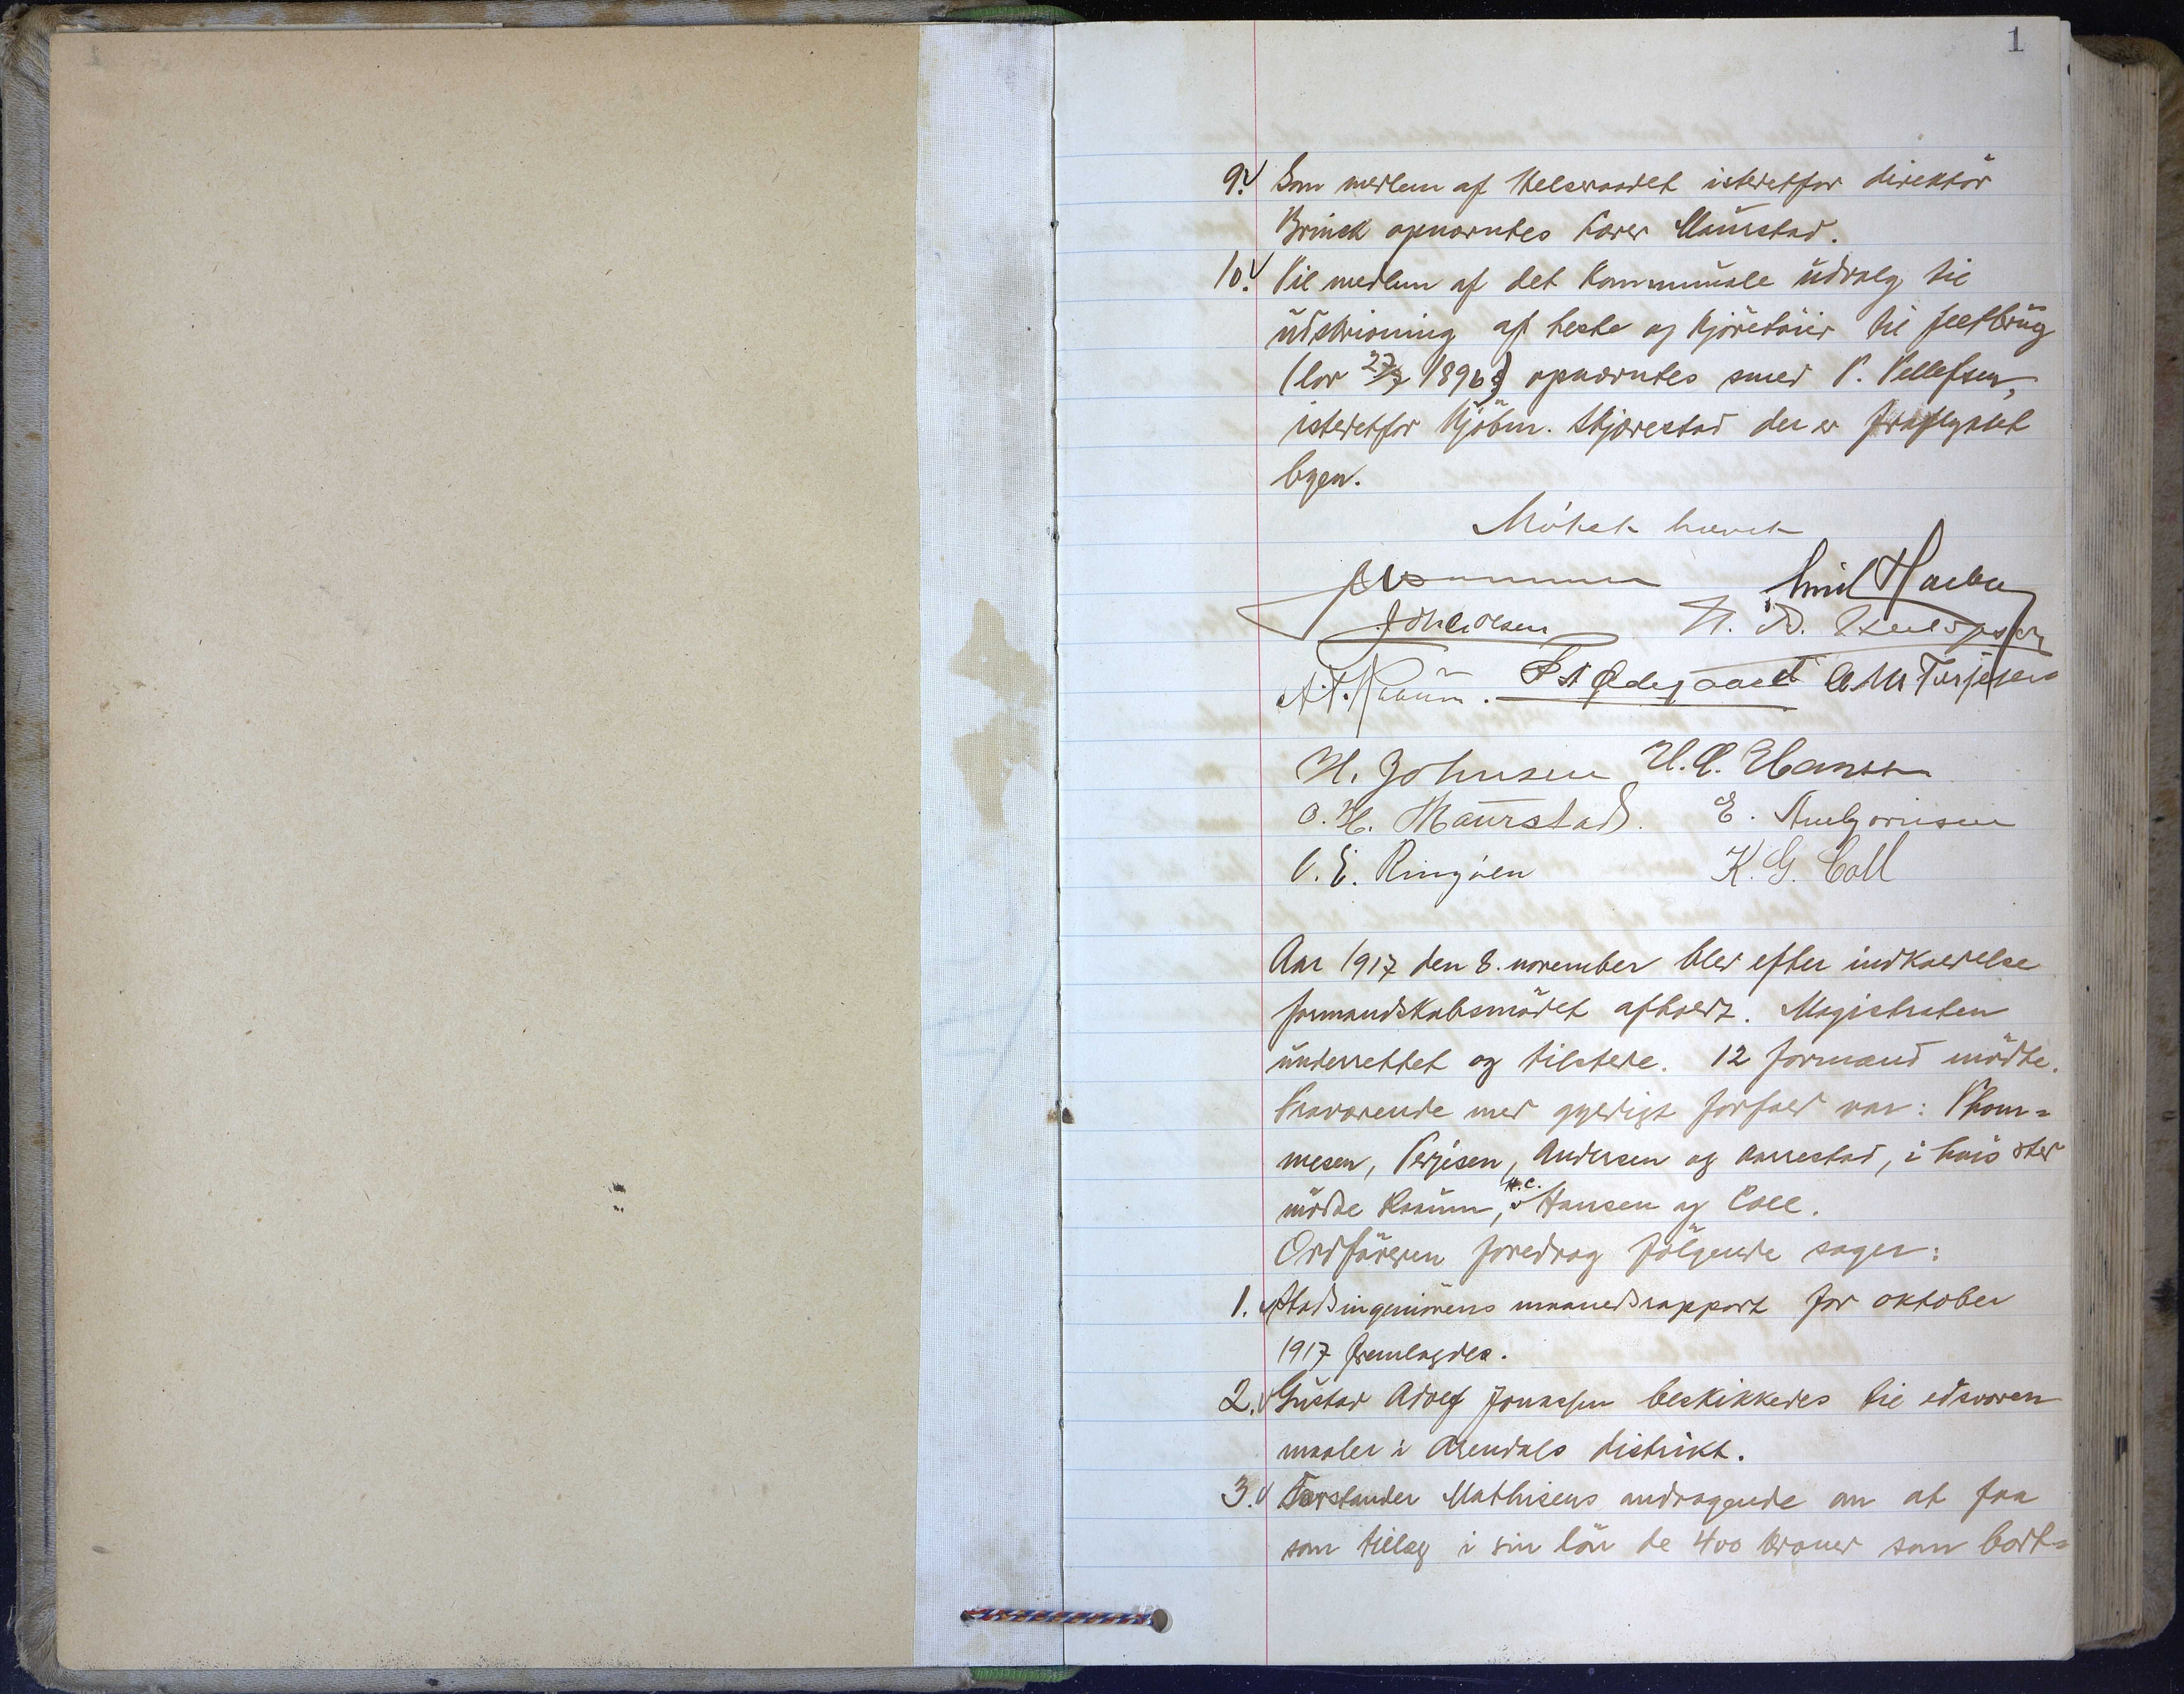 1
9. Som medlem af Helseraadet istedetfor direktör
Brinck opnævntes Lærer Maurstad.
10. Til medlem af det kommunale udvalg til
udskrivning af heste og kjöretöier til feltbrug
(lov 27/7 1896) opnævntes smed T. Tellefsen,
istedetfor kjöbm. Skjærestad der er fraflyttet
byen.
Mötet hævet
Emil
J Ohl. Olsen N. B.
A. T. Raaum. Ødegaard A M Terjesen
H. Johnsen H. C. Hansen
O. H. Maurstad. E. Arnbjørnsen
O. E. Ringøen K. G. Coll
Aar 1917 den 8. november blev efter indkaldelse
formandskabsmödet afholdt. Magistraten
underrettet og tilstede. 12 formænd mödte.
Fraværende med gyldigt forfald var: Thom=
mesen, Terjesen, Andersen og Aarrestad, i hvis sted
mödte Raaum, H.C. Hansen og Coll.
Ordföreren foredrog fölgende sager:
1. Stadsingeniörens maanedsrapport for oktober
1917 fremlagdes.
2. Gustav Adolf Jonassen beskikkedes til edsvoren
maaler i Arendals distrikt.
3. Forstander Mathisens andragende om at faa
som tillæg i sin lön de 400 kroner som bort=